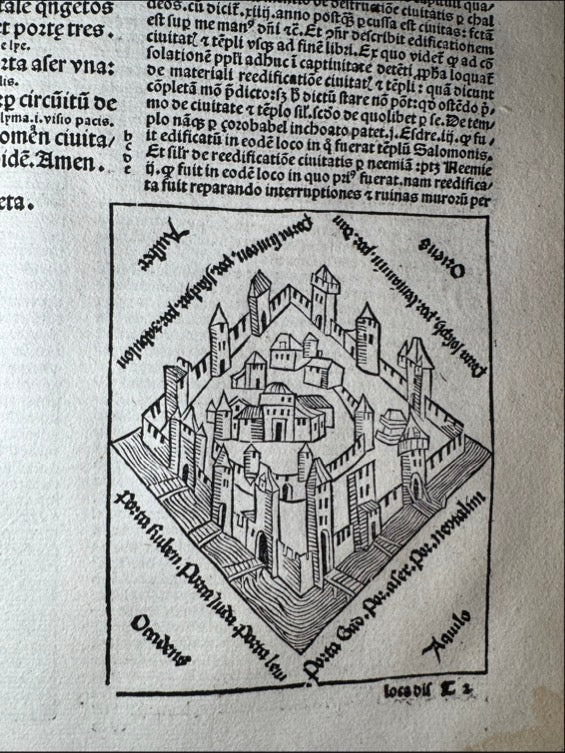 tale qngetos
et portę tres.
e lpe.
rta aser vna:
lis.
ꝑ circūitū de
lyma.i.visio pacis.
omēn ciuita/
idē. Amen.
eta.
b
c
d
e
deos. cū dicit. xiiij. anno postq̄ ꝑcussa est ciuitas: fctā
est sup me manꝰ dn̄i ⁊c. Et ꝯn̄r describit edificationem
ciuitatꝭ ⁊ tēpli vsq; ad finē libri. Ex quo videt ꝙ ad cō
solationē ppli adhuc ī captiuitate detēti ꝓpha loquat̄
de materiali reedificatiōe ciuitatꝭ ⁊ tēpli: quā dicunt
cōpletā mō p̄dicto: sꝫ h̄ dictū stare nō pōt: qd̄ ostēdo p̄/
mo de ciuitate ⁊ tēplo sil̄. scd̄o de quolibet ꝑ se. De tem/
plo nāqꝫ ꝑ ȥorobabel inchoato patet. j. Esdre. iij. ꝙ fu/
it edificatū in eodē loco in q̄ fuerat tēplū Salomonis.
Et sil̄r de reedificatiōe ciuitatis ꝑ neemiā: ptꝫ Neemie
ij. ꝙ fuit in eodē loco in quo priꝰ fuerat. nam reedifica/
ta fuit reparando interruptiones ⁊ ruinas muroꝝ per
Auster
Oriens
porta simeon, por, ysachar, por, zabulon
porta Joseph, por, beniamin, por, dan
Porta Ruben. Porta Juda. Porta leui
Porta Gad. Por, aser. Por, Neptalim
Occidens
Aquilo